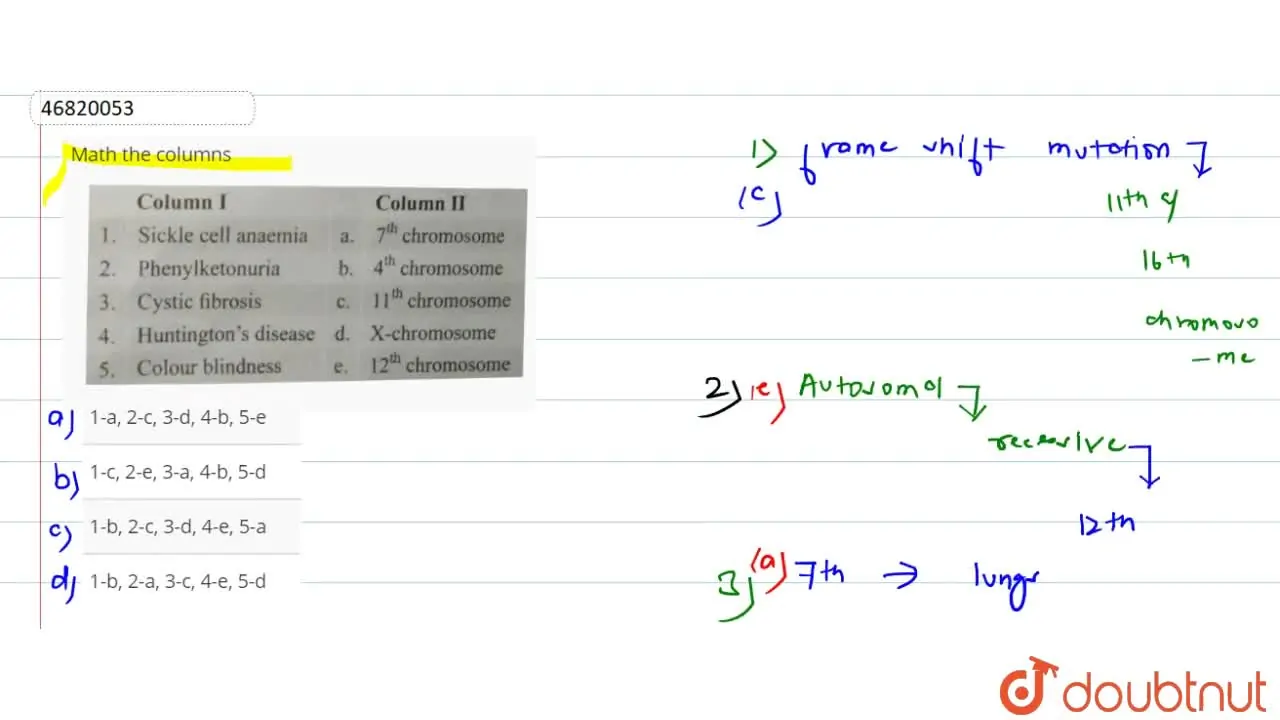 46820053
Math the columns
Column I Column II
1. Sickle cell anaemia a. 7th chromosome
2. Phenylketonuria b. 4th chromosome
3. Cystic fibrosis c. 11th chromosome
4. Huntington's disease d. X-chromosome
5. Colour blindness e. 12th chromosome
a) 1-a, 2-c, 3-d, 4-b, 5-e
b) 1-c, 2-e, 3-a, 4-b, 5-d
c) 1-b, 2-c, 3-d, 4-e, 5-a
d) 1-b, 2-a, 3-c, 4-e, 5-d
1) frame shift mutation
(c)
11th
16th
chromoso
-me
2) (e) Autosomal
recessive
12th
3) (a) 7th → lungs
doubtnut